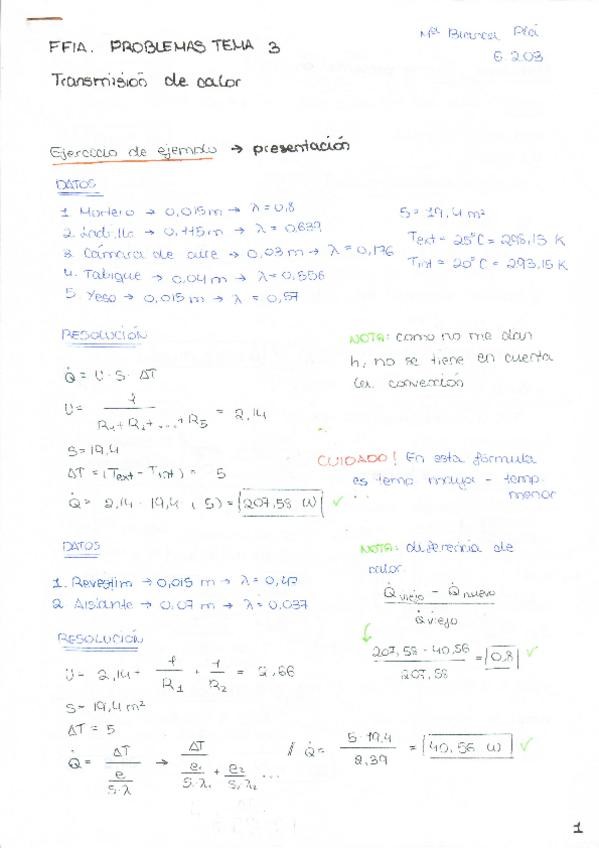 FFIA. PROBLEMAS TEMA 3
Mª Blanca Plá
6.2.03
Transmisión de calor
Ejercicio de ejemplo → presentación
DATOS
1. Mortero → 0,015 m → λ = 0,8
2. Ladrillo → 0,115 m → λ = 0,639
3. Cámara de aire → 0,03 m → λ = 0,176
4. Tabique → 0,04 m → λ = 0,556
5. Yeso → 0,015 m → λ = 0,57
S = 19,4 m²
Text = 25°C = 298,15 K
Tint = 20°C = 293,15 K
RESOLUCIÓN
Q̇ = U · S · ΔT
U = 1 / (R1 + R2 + ... + R5) = 2,14
S = 19,4
ΔT = (Text - Tint) = 5
Q̇ = 2,14 · 19,4 · (5) = 207,58 W ✓
NOTA: como no me dan
h, no se tiene en cuenta
la convección
CUIDADO! En esta fórmula
es temp mayor - temp.
menor
DATOS
1. Revestim → 0,015 m → λ = 0,47
2. Aislante → 0.07 m → λ = 0,037
RESOLUCIÓN
U = 2,14 + 1/R1 + 1/R2 = 2,66
S = 19,4 m²
ΔT = 5
Q̇ = ΔT / (e / S·λ) → ΔT / (e1 / S·λ1 + e2 / S·λ2 ...
// Q̇ = 5 · 19,4 / 2,39 = 40,56 W ✓
NOTA: diferencia de
calor
Q̇viejo - Q̇nuevo / Q̇viejo
207,58 - 40,56 / 207,58 = 0,8 ✓
1